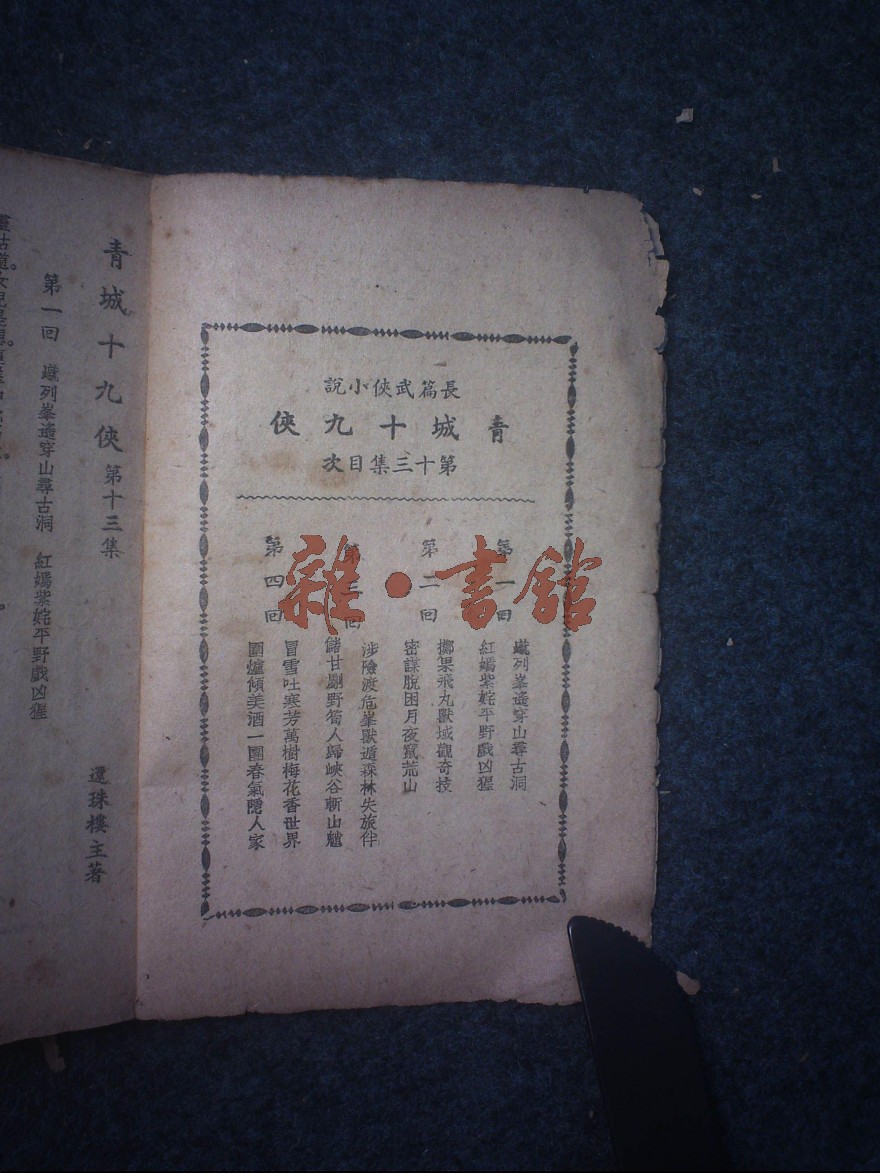 長篇武俠小說
青城十九俠
第十三集目次
第一回
列峯遙穿山尋古洞
紅嫣紫姹平野戲凶猩
第二回
擲果飛丸獸域觀奇技
密謀脫困月夜竄荒山
第三回
涉險渡危峯獸遁森林失旅伴
儲甘劚野筍人歸峽谷斬山魈
第四回
冒雪吐寒芳萬樹梅花香世界
圍爐傾美酒一團春氣隱人家
雜·書館
青城十九俠 第十三集
還珠樓主著
第一回 列峯遙穿山尋古洞 紅嫣紫姹平野戲凶猩